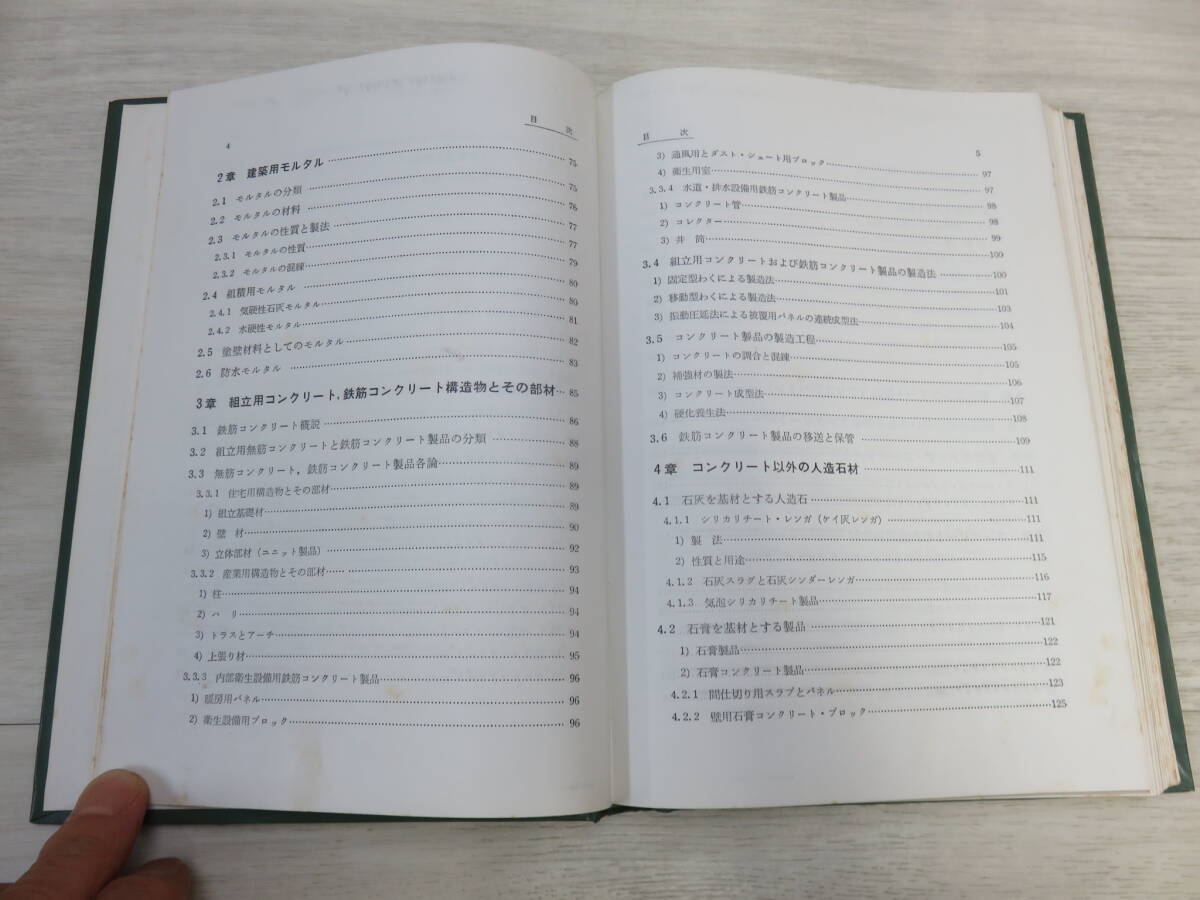 4
目次
2章 建築用モルタル 75
2.1 モルタルの分類 75
2.2 モルタルの材料 76
2.3 モルタルの性質と製法 77
2.3.1 モルタルの性質 77
2.3.2 モルタルの混練 79
2.4 組積用モルタル 80
2.4.1 気硬性石灰モルタル 80
2.4.2 水硬性モルタル 81
2.5 塗壁材料としてのモルタル 82
2.6 防水モルタル 83
3章 組立用コンクリート,鉄筋コンクリート構造物とその部材 85
3.1 鉄筋コンクリート概説 86
3.2 組立用無筋コンクリートと鉄筋コンクリート製品の分類 88
3.3 無筋コンクリート,鉄筋コンクリート製品各論 89
3.3.1 住宅用構造物とその部材 89
1) 組立基礎材 89
2) 壁材 90
3) 立体部材(ユニット製品) 92
3.3.2 産業用構造物とその部材 93
1) 柱 94
2) ハリ 94
3) トラスとアーチ 94
4) 上張り材 95
3.3.3 内部衛生設備用鉄筋コンクリート製品 96
1) 暖房用パネル 96
2) 衛生設備用ブロック 96
目次
5
3) 通風用とダスト・シュート用ブロック 97
4) 衛生用室 97
3.3.4 水道・排水設備用鉄筋コンクリート製品 98
1) コンクリート管 98
2) コレクター 99
3) 井筒 100
3.4 組立用コンクリートおよび鉄筋コンクリート製品の製造法 100
1) 固定型わくによる製造法 101
2) 移動型わくによる製造法 103
3) 振動圧延法による被覆用パネルの連続成型法 104
3.5 コンクリート製品の製造工程 105
1) コンクリートの調合と混練 105
2) 補強材の製法 106
3) コンクリート成型法 107
4) 硬化養生法 108
3.6 鉄筋コンクリート製品の移送と保管 109
4章 コンクリート以外の人造石材 111
4.1 石灰を基材とする人造石 111
4.1.1 シリカリチート・レンガ(ケイ灰レンガ) 111
1) 製法 111
2) 性質と用途 115
4.1.2 石灰スラグと石灰シンダーレンガ 116
4.1.3 気泡シリカリチート製品 117
4.2 石膏を基材とする製品 121
1) 石膏製品 122
2) 石膏コンクリート製品 122
4.2.1 間仕切り用スラブとパネル 123
4.2.2 壁用石膏コンクリート・ブロック 125